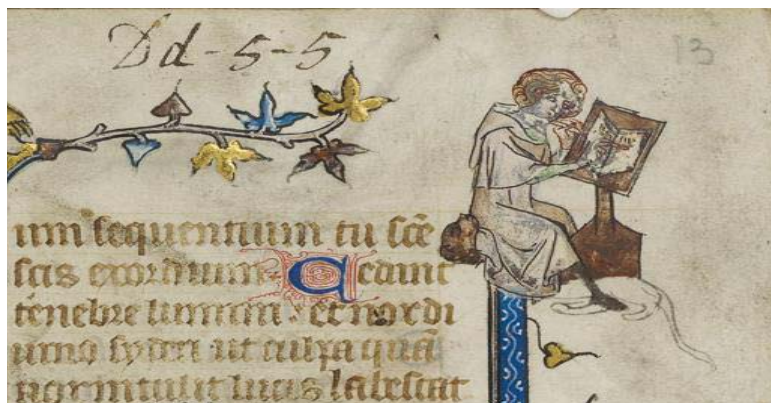 Dd-5-5
13
um sequentium tu sce
scis exordium Cedant
tenebre lumini et nox di
urno syderi ut culpa quā
nox intulit lucis labescat